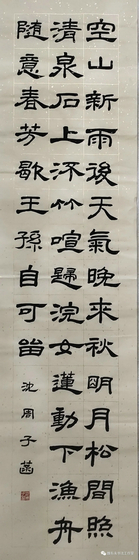 空山新雨後天氣晚來秋明月松間照
清泉石上流竹喧歸浣女蓮動下漁舟
隨意春芳歇王孫自可留
沈周子菡